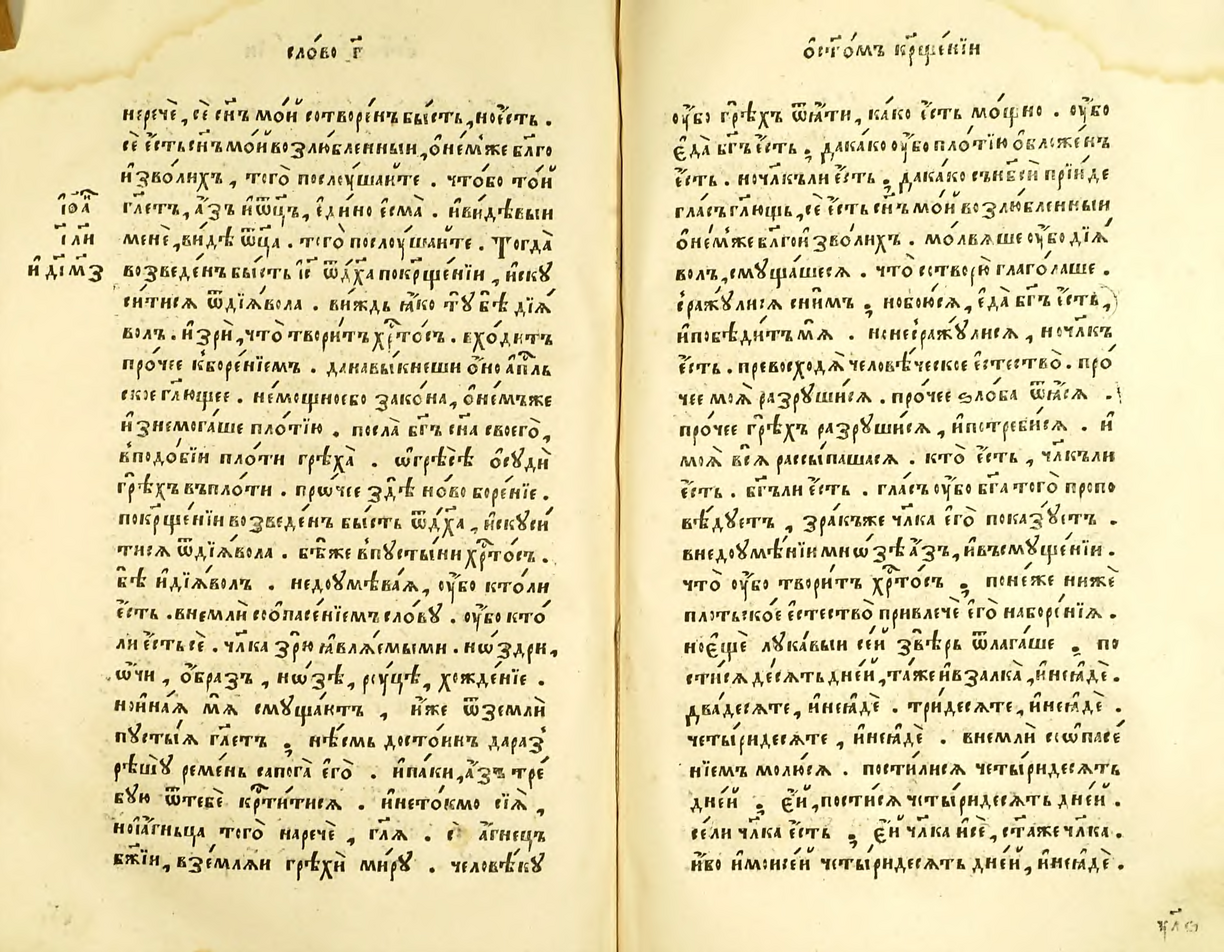 сло́во г҃
неречѐ, сѐ сн҃ъ мо́й сотворе́нъ бы́сть, но є҆́сть .
сѐ є҆́сть сн҃ъ мо́й возлю́бленныи, ѻ҆не́мже бл҃го
и҆зво́лихъ , того̀ послꙋ́шаите . что́бо то́й
і҆ѡа҃
гл҃етъ, а҆́зъ и҆ѿц҃ъ, є҆ди́но є҆сма̀ . и҆ви́дѣвыи
і҃ л҃и
менѐ, ви́дѣ ѿц҃а . того̀ послоу́шаите . Тогда̀
и҆ ді҃ м҃з
возведе́нъ бы́сть і҆с҃ ѿдх҃а покрщ҃е́нїи , и҆скꙋ
си́тисѧ ѿдїѧ́вола . ви́ждь ꙗ҆́ко тꙋ̀ бѣ̀ дїѧ́
волъ . и҆зрѝ, что̀ твори́тъ хрⷭ҇то́съ . вхо́дитъ
про́чее кборе́нїемъ . данавы́кнеши ѻ҆́но а҆пⷭ҇ль
ское гл҃ющее . не́мощноебо зако́на, ѻ҆не́мъже
и҆знемога́ше пло́тїю . посла̀ бг҃ъ сн҃а своего̀,
вподо́бїи пло́ти грѣха̀ . ѡ҆грѣсѣ̀ ѻ҆сꙋдѝ
грѣ́хъ въпло́ти . прѡ́чее здѣ̀ но́во боре́нїе .
покрщ҃е́нїи возведе́нъ бы́сть ѿдх҃а , и҆скꙋси́
тисѧ ѿдїѧ́вола . бѣ́же впꙋсты́ни хрⷭ҇то́съ .
бѣ̀ и҆дїѧ́волъ . недоумѣва́ѧ, оу҆́бо кто́ли
є҆́сть . внемлѝ соопасе́нїемъ сло́вꙋ . оу҆́бо кто́
ли є҆́сть сѐ . чл҃ка зрю̀ ꙗ҆влѧ́емыми . но́здри,
ѻ҆́чи , ѻ҆́бразъ , но́зѣ, рꙋ́цѣ, хожде́нїе .
но и҆на́ѧ мѧ̀ смꙋща́ютъ , и҆́же ѿземлѝ
пꙋсты́ѧ гл҃етъ ; нѣ́смь досто́инъ дараз
рѣшꙋ̀ реме́нь сапога̀ є҆го̀ . и҆па́ки, а҆́зъ тре́
бꙋю ѿтебѐ крⷭ҇ти́тисѧ . и҆нето́кмо сїѧ̀ ,
но и҆а҆́гньца того̀ наречѐ , гл҃ѧ . сѐ а҆́гнецъ
бж҃їи, взе́млѧи грѣхѝ ми́рꙋ . человѣ́кꙋ
ѻ҆ст҃о́мъ крщ҃е́нїи
оу҆́бо грѣ́хъ ѿѧ́ти, ка́ко є҆́сть мо́щно . оу҆́бо
є҆да̀ бг҃ъ є҆́сть ; дака́ко оу҆́бо пло́тїю ѻ҆бложе́нъ
є҆́сть . но чл҃къли є҆́сть ; дака́ко сън҃бсѝ прїи́де
гла́съ гл҃ющь, сѐ є҆́сть сн҃ъ мо́й возлю́бленныи
ѻ҆не́мже бл҃го и҆зво́лихъ . мо́лвѧше оу҆́бо дїѧ́
волъ, смꙋща́шесѧ . что̀ сотворю̀ глаго́лаше .
сражꙋ́лисѧ сни́мъ ; нобою́сѧ, є҆да̀ бг҃ъ є҆́сть,
и҆побѣди́тъ мѧ̀ . и҆несражꙋ́лисѧ , но чл҃къ
є҆́сть . превосходѧ̀ человѣ́ческое є҆стество̀ . про́
чее моѧ̀ разрꙋши́сѧ . про́чее ѕло́ба ѿѧ́сѧ .
про́чее грѣ́хъ разрꙋши́сѧ , и҆потреби́сѧ . и҆
моѧ̀ всѧ̀ рассы́пашасѧ . кто̀ є҆́сть , чл҃къли
є҆́сть . бг҃ъли є҆́сть . гла́съ оу҆́бо бг҃а того̀ пропо
вѣ́дꙋетъ , зра́къже чл҃ка є҆го̀ показꙋ́етъ .
внедоумѣ́нїи мно́зѣ а҆́зъ, и҆въсмꙋще́нїи .
что̀ оу҆́бо твори́тъ хрⷭ҇то́съ ; поне́же нижѐ
плотьско́е є҆стество̀ привлечѐ є҆го̀ наборе́нїѧ .
но є҆щѐ лꙋка́выи се́й звѣ́рь ѿлага́ше ; по
сти́сѧ де́сѧть дне́й, та́же и҆взалка̀, и҆неꙗ҆дѐ .
два́десѧте, и҆неꙗ҆дѐ . три́десѧте, и҆неꙗ҆дѐ .
четы́ридесѧте , и҆неꙗ҆дѐ . внемлѝ соѡ҆пасе́
нїемъ молю́сѧ . пости́лисѧ четы́ридесѧть
дне́й ; є҆́й, пости́сѧ четы́ридесѧть дне́й .
се́ли чл҃ка є҆́сть ; є҆́й чл҃ка и҆сѐ, ста́же чл҃ка .
и҆́бо и҆мѡисе́й четы́ридесѧть дне́й, и҆неꙗ҆дѐ .